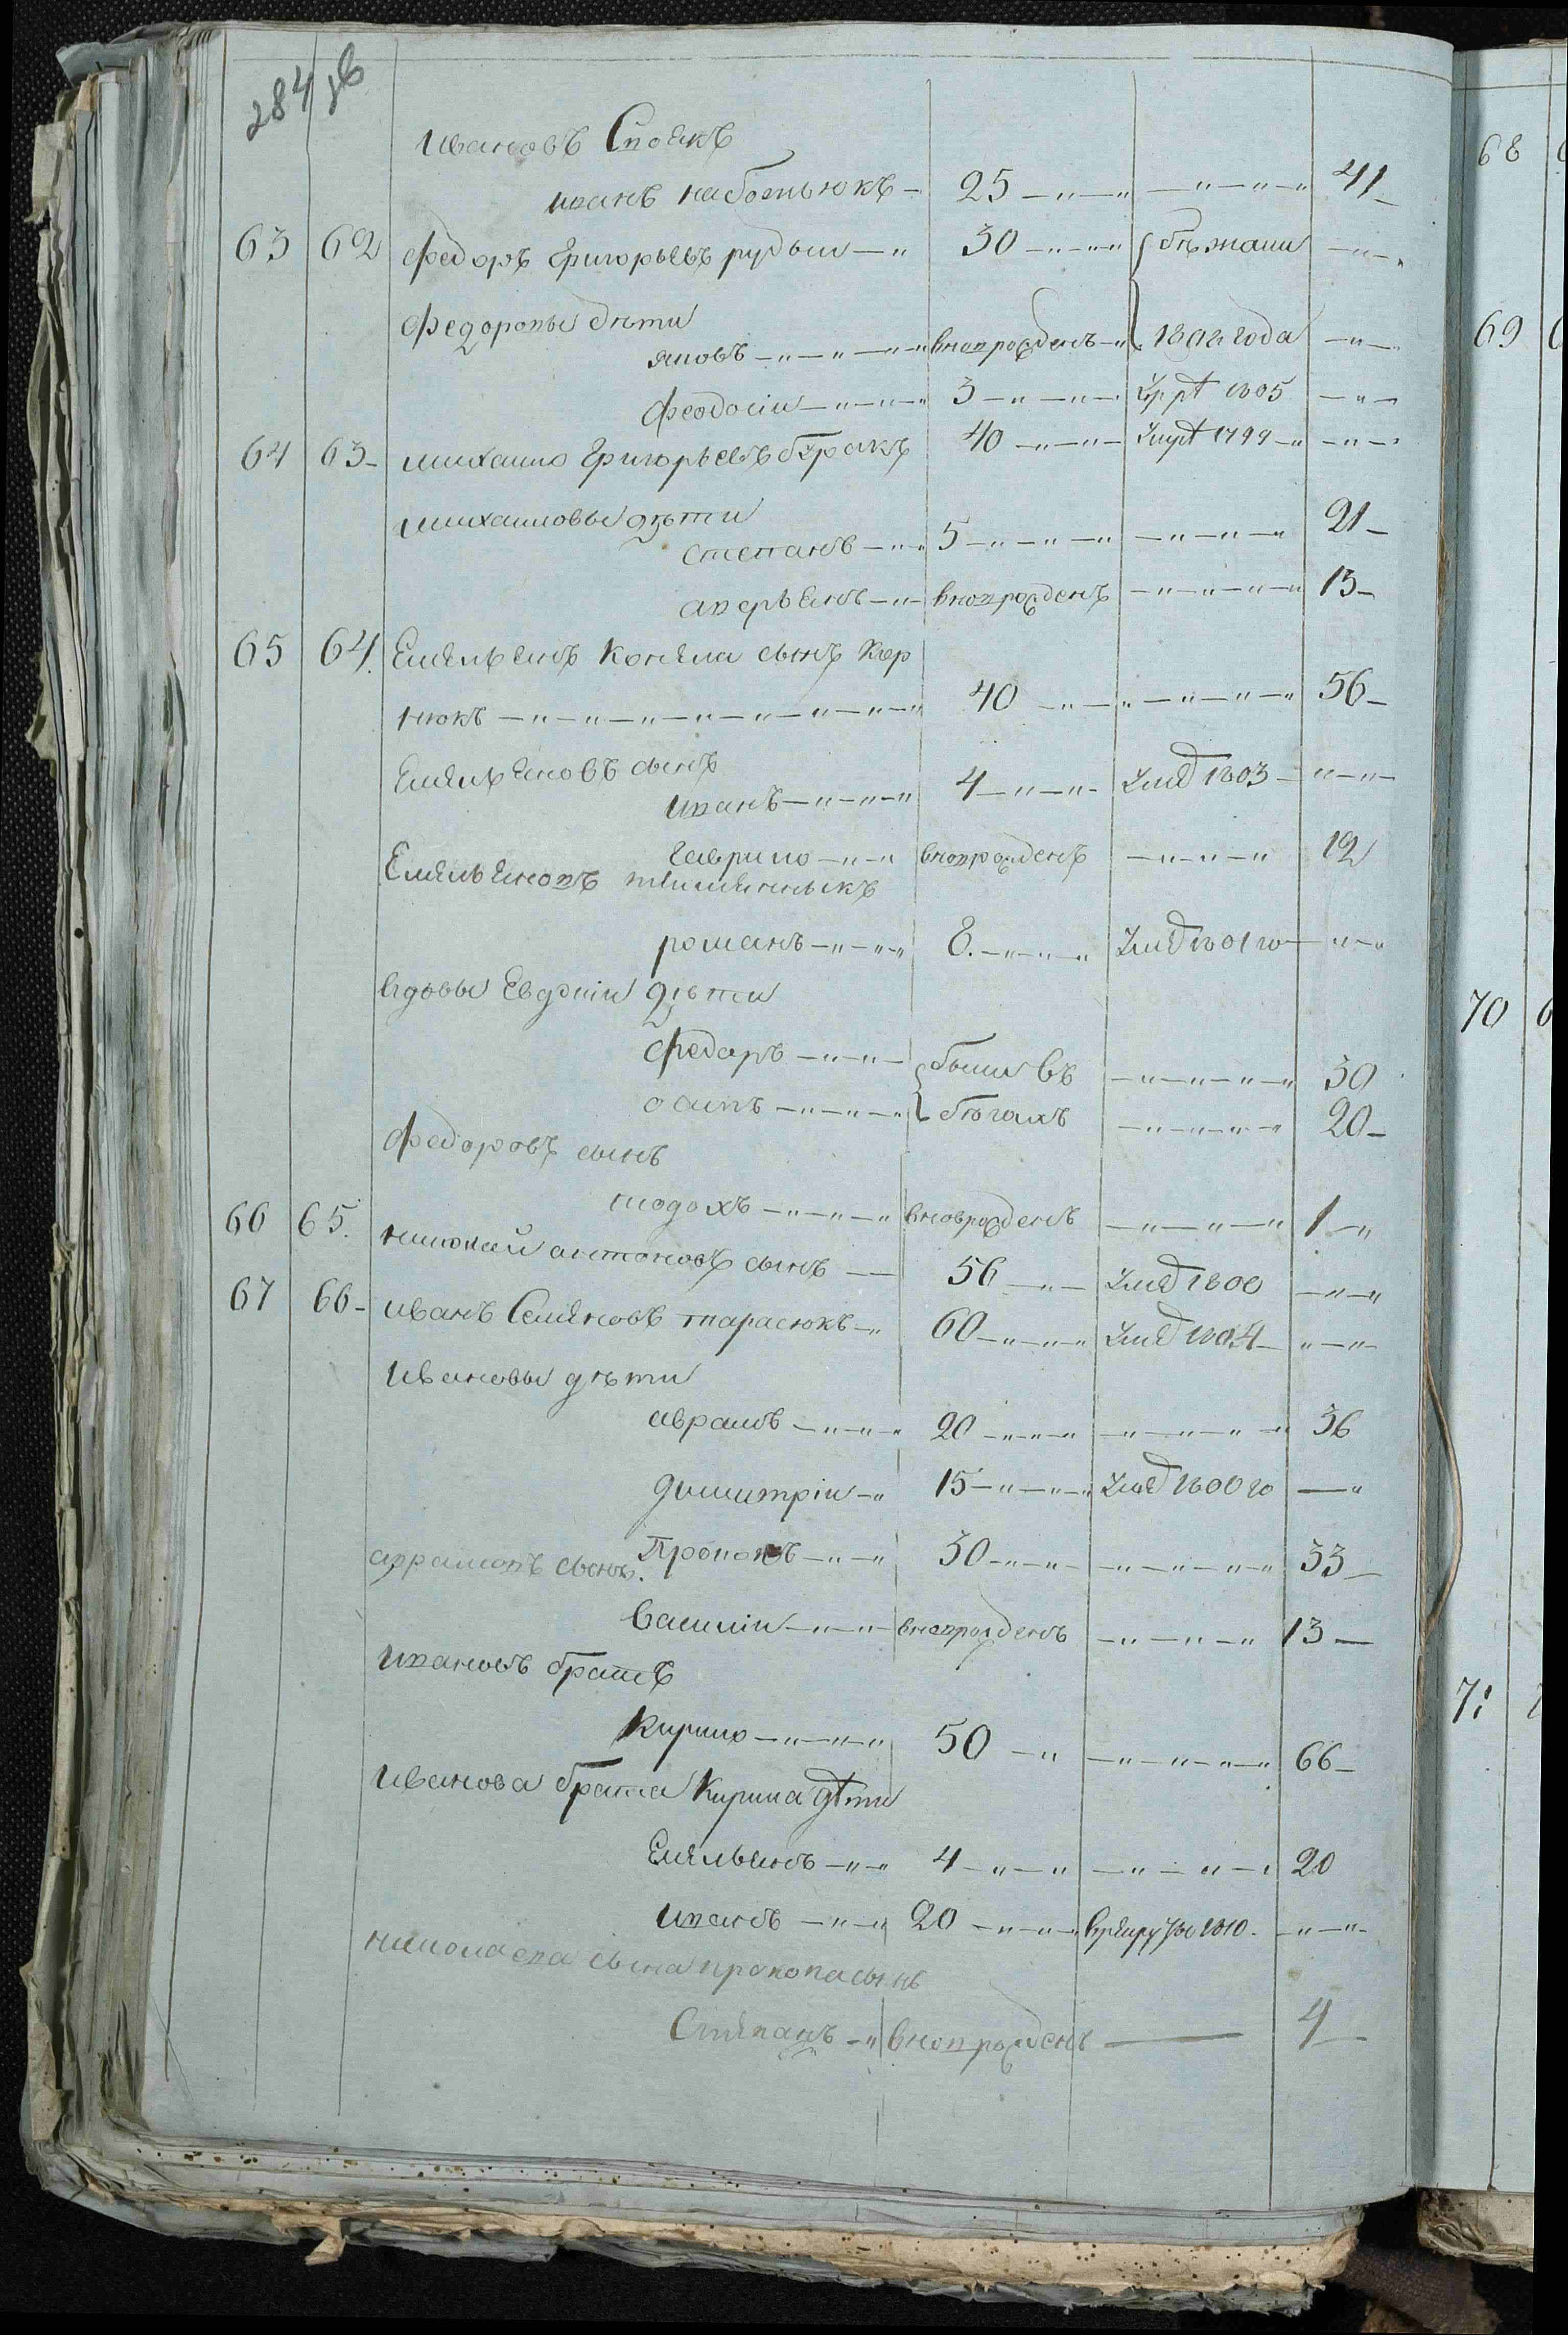 284 об
Ивановъ Споякъ
иванъ наботнюкъ 25 41
63 62 Федоръ Григорьевъ рудыи 30 бѣжали
Федоровы дѣти
яковъ вновѣрожденъ года
Феодосіи 3 1805
64 63 михаило Григорьевъ 40 умрѣ 1799
михаиловы дѣти
степанъ 5 21
аверьянъ вновѣрожденъ 13
65 64 Емельянъ сынъ Кор
нюкъ 40 56
Емельяновъ сынъ
иванъ 4 1803
гаврило вновѣрожденъ 12
Емельяновъ племянныкъ
романъ 8 1801 го
вдовы Евдокіи дѣти
Федоръ были въ 30
осипъ бѣгахъ 20
Федоровъ сынъ
вновѣрожденъ 1
66 65 николай антоновъ сынъ 56 1800
67 66 иванъ Семеновъ тарасюкъ 60 1804
Ивановы дѣти
аврамъ 20 36
димитріи 15 1800 го
Прокопъ 30 33
аврамовъ сынъ
Василіи вновѣрожденъ 13
ивановъ братъ
Кирило 50 66
Иванова брата Кирила дѣти
Емельянъ 4 20
иванъ 20 в рекруты 1810
николаева сына прокопа сынъ
Степанъ вновѣрожденъ 4
68
69
70
71